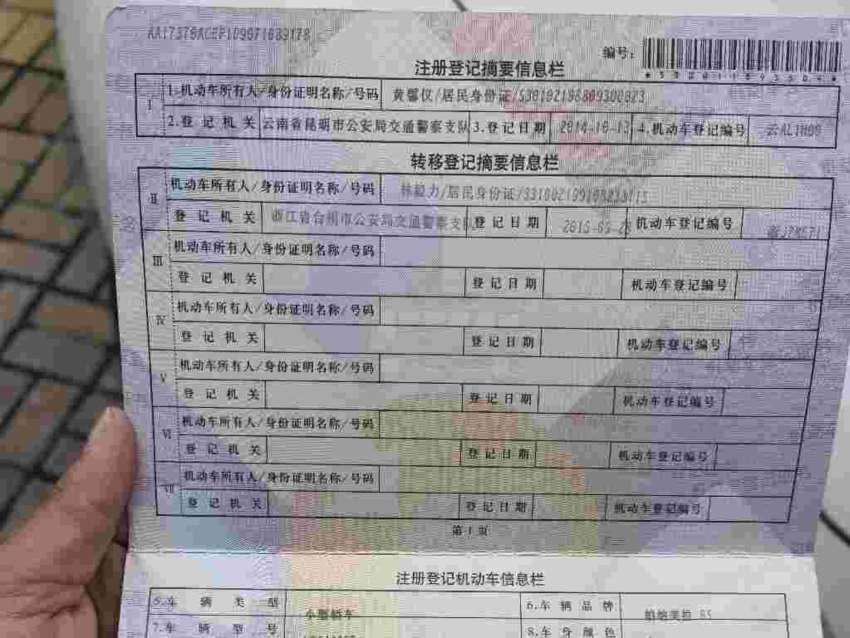 编号:
注册登记摘要信息栏
I 1.机动车所有人/身份证明名称/号码 黄馨仪/居民身份证/
2.登记机关 云南省昆明市公安局交通警察支队 3.登记日期 2014-10-13 4.机动车登记编号
转移登记摘要信息栏
II 机动车所有人/身份证明名称/号码 /居民身份证/
登记机关 浙江省台州市公安局交通警察支队 登记日期 机动车登记编号
III 机动车所有人/身份证明名称/号码
登记机关 登记日期 机动车登记编号
IV 机动车所有人/身份证明名称/号码
登记机关 登记日期 机动车登记编号
V 机动车所有人/身份证明名称/号码
登记机关 登记日期 机动车登记编号
VI 机动车所有人/身份证明名称/号码
登记机关 登记日期 机动车登记编号
VII 机动车所有人/身份证明名称/号码
登记机关 登记日期 机动车登记编号
第1页
注册登记机动车信息栏
5.车辆类型 小型轿车 6.车辆品牌
7.车辆型号 8.车身颜色